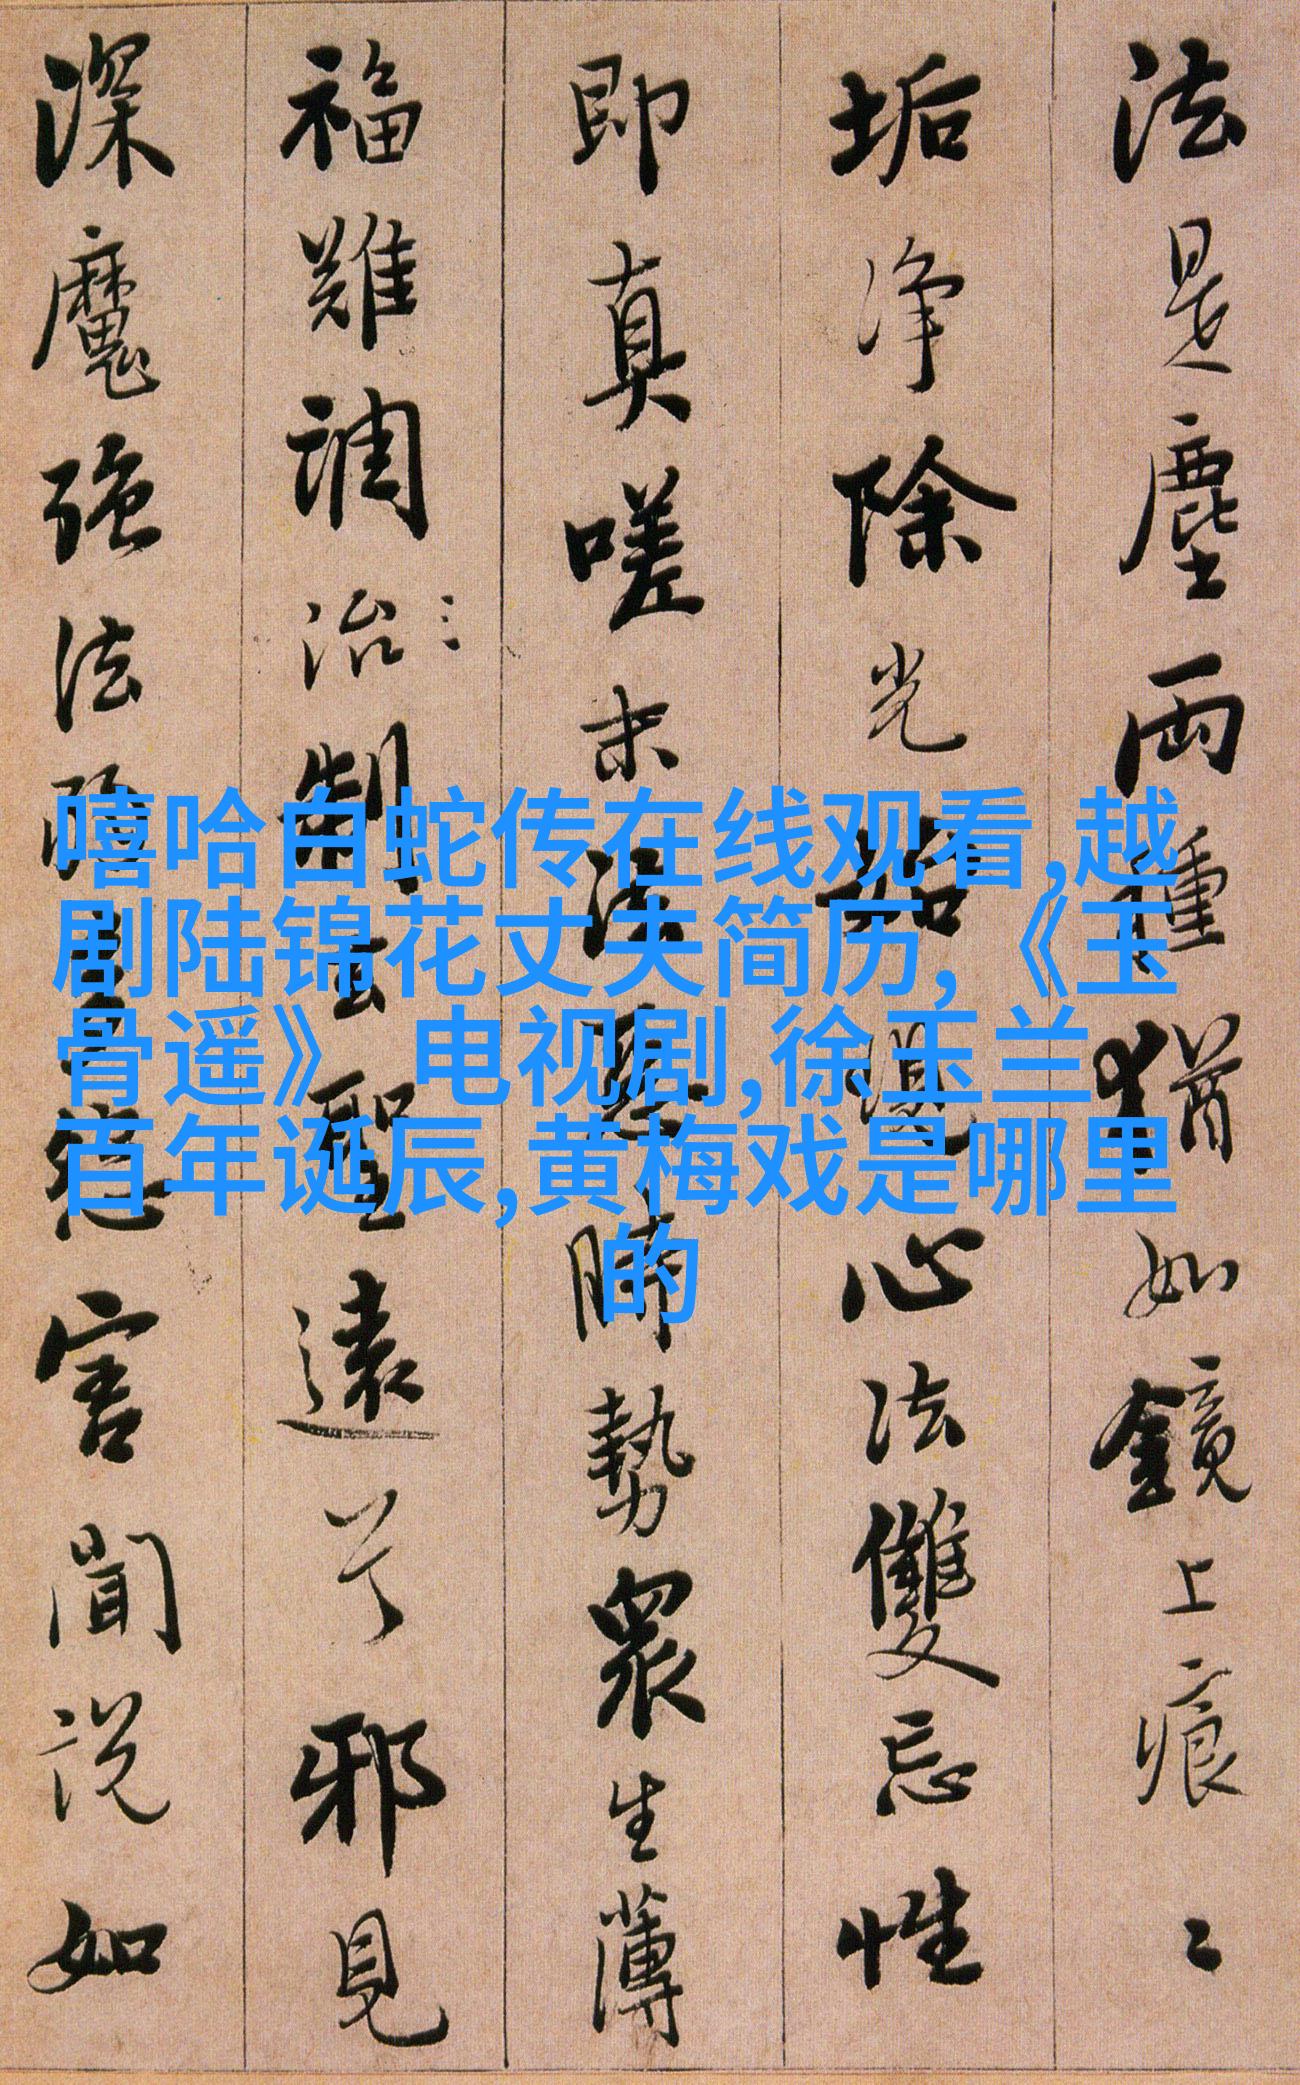 法是塵兩種猶如鏡上痕〻
垢淨除光始現心法雙忘性
即真嗟末法惡時勢衆生薄
福難調治制去聖遠兮邪見
深魔強法弱怨害聞説如
嘻哈白蛇传在线观看,越
剧陆锦花丈夫简历,《玉
骨遥》 电视剧,徐玉兰
百年诞辰,黄梅戏是哪里
的